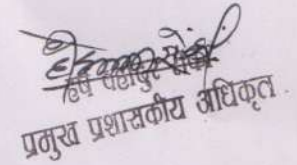 हर्ष बहादुर
प्रमुख प्रशासकीय अधिकृत